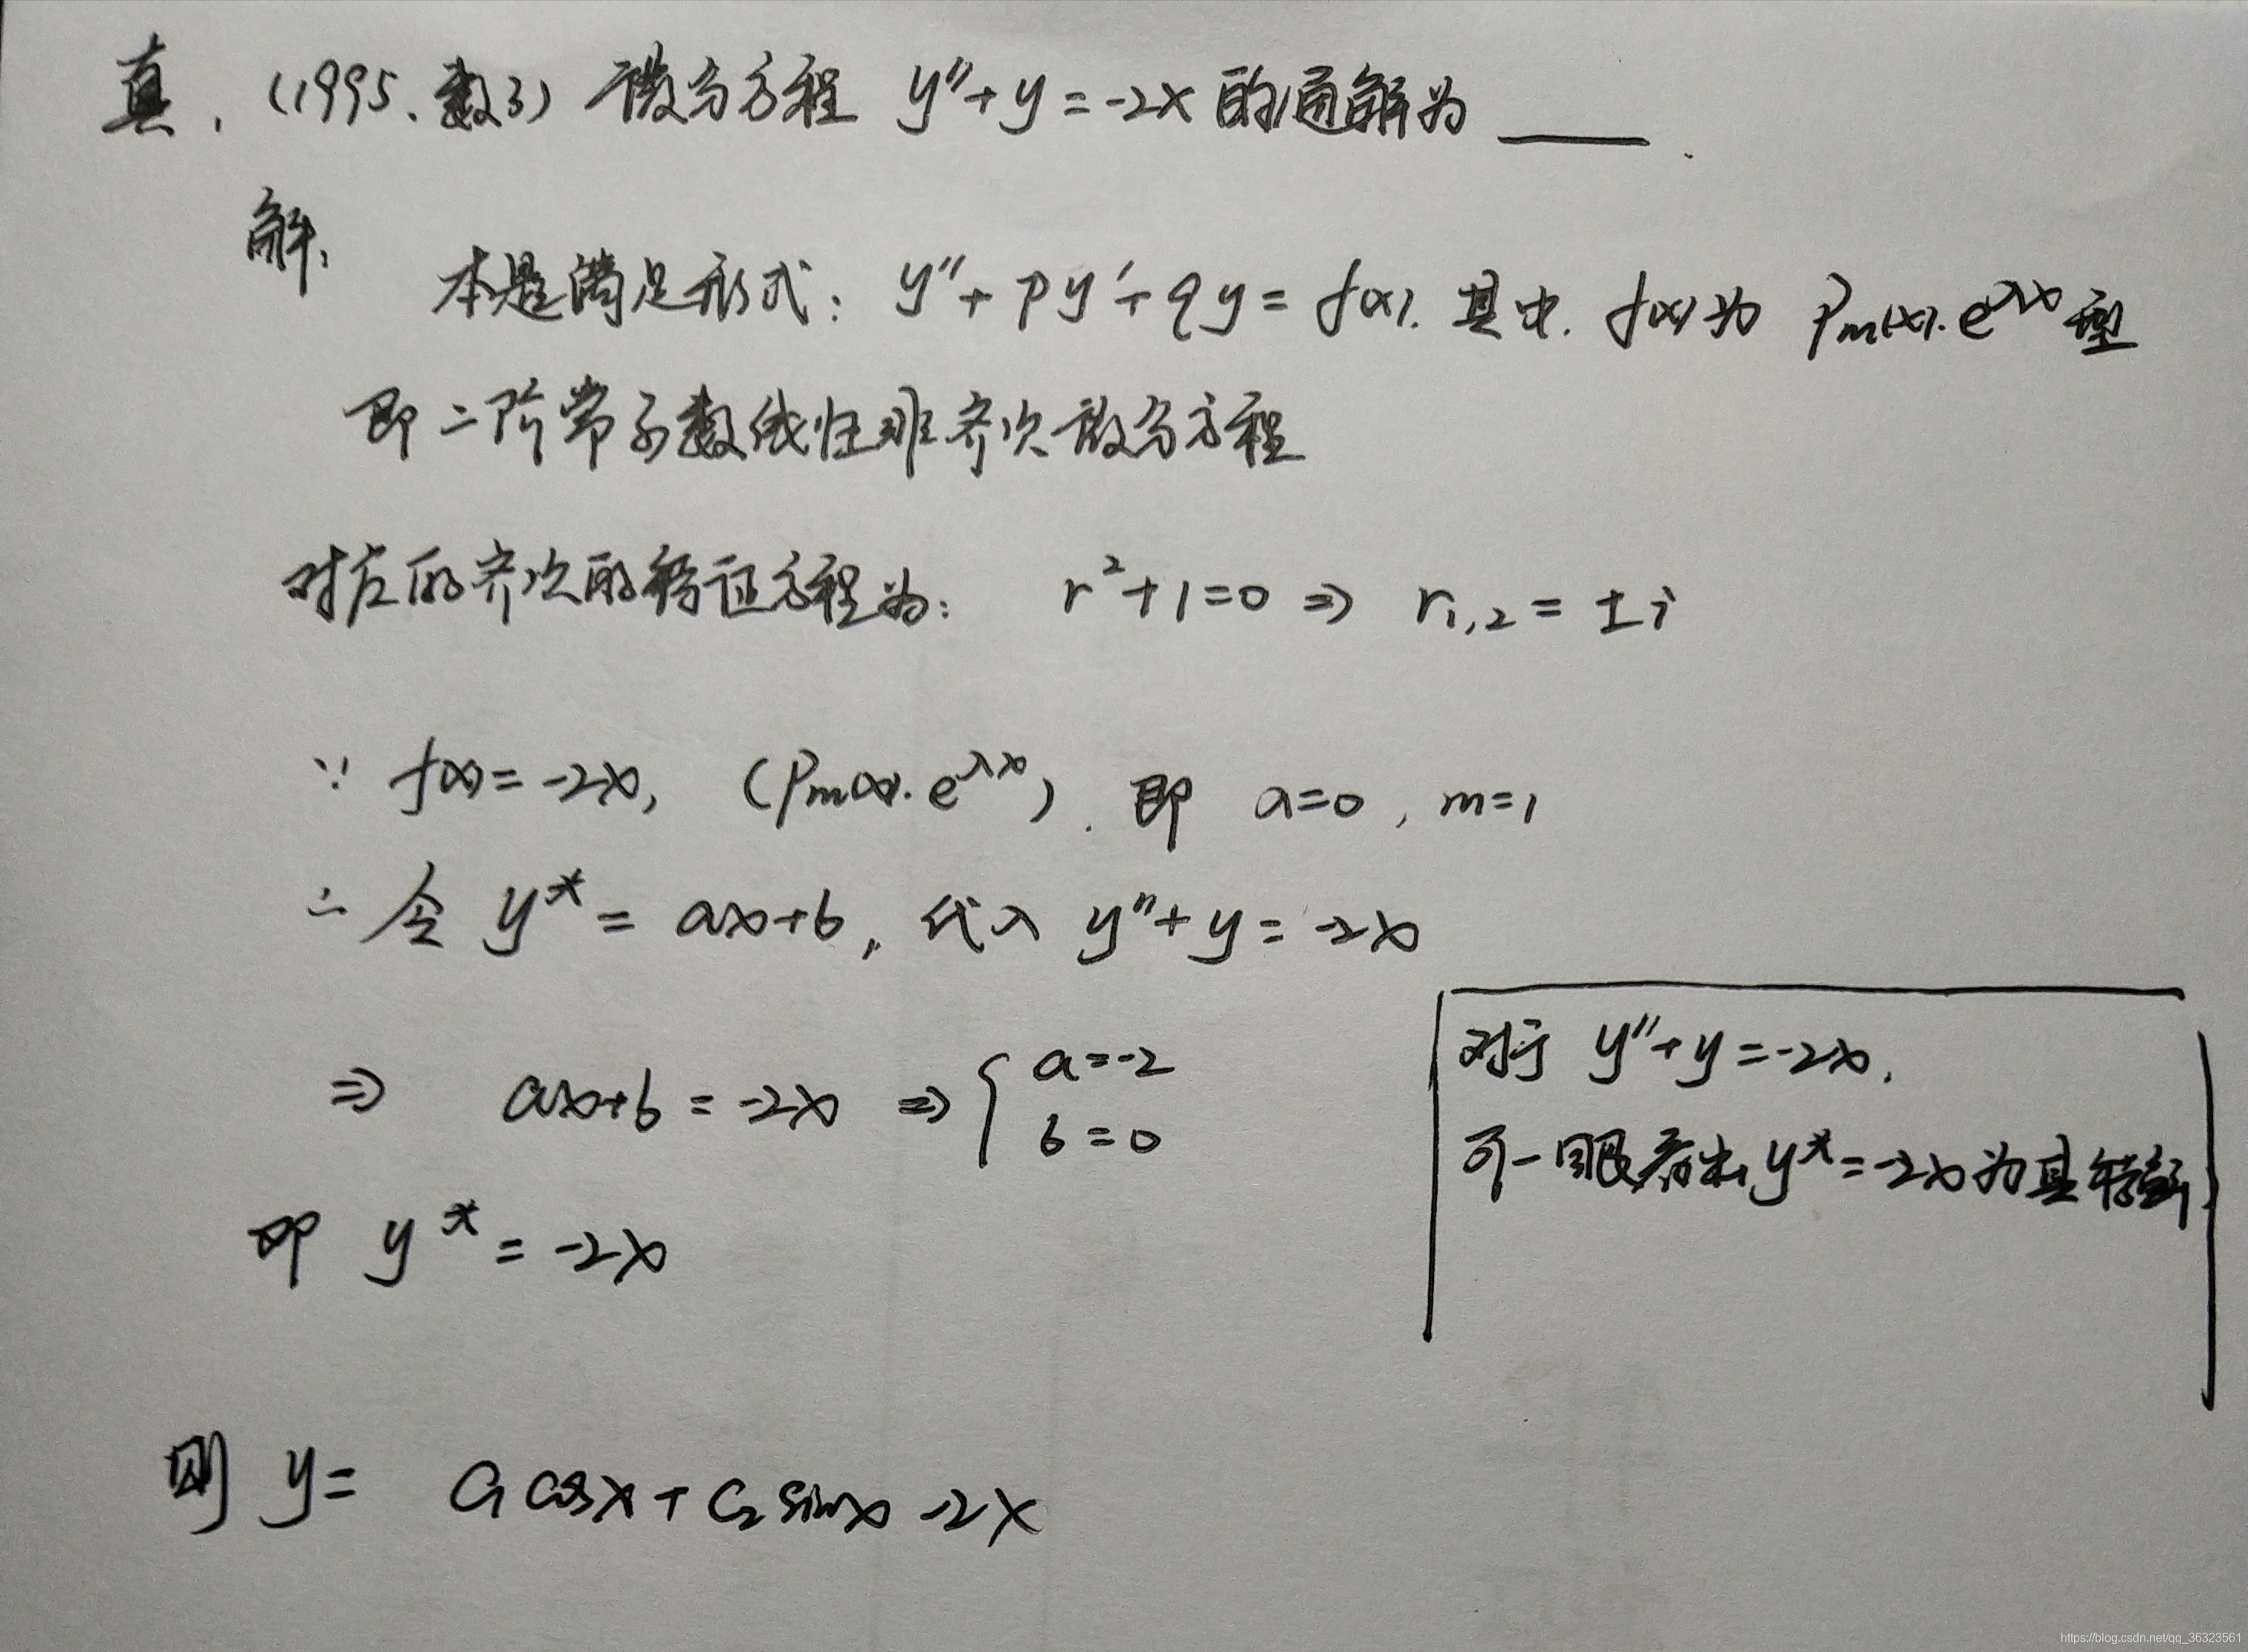 真. (1995.数3) 微分方程 y″+y=-2x 的通解为 ____.
解.
本题满足形式: y″+py′+qy=f(x). 其中. f(x)为 Pm(x)·e^λx 型
即二阶常系数线性非齐次微分方程
对应的齐次的特征方程为: r²+1=0 ⇒ r1,2=±i
∵ f(x)=-2x, (Pm(x)·e^λx). 即 λ=0, m=1
∴ 令 y*=ax+b, 代入 y″+y=-2x
⇒ ax+b=-2x ⇒ { a=-2
b=0
即 y*=-2x
对于 y″+y=-2x.
可一眼看出 y*=-2x 为其特解.
则 y= C1cosx+C2sinx-2x
https://blog.csdn.net/qq_36323561